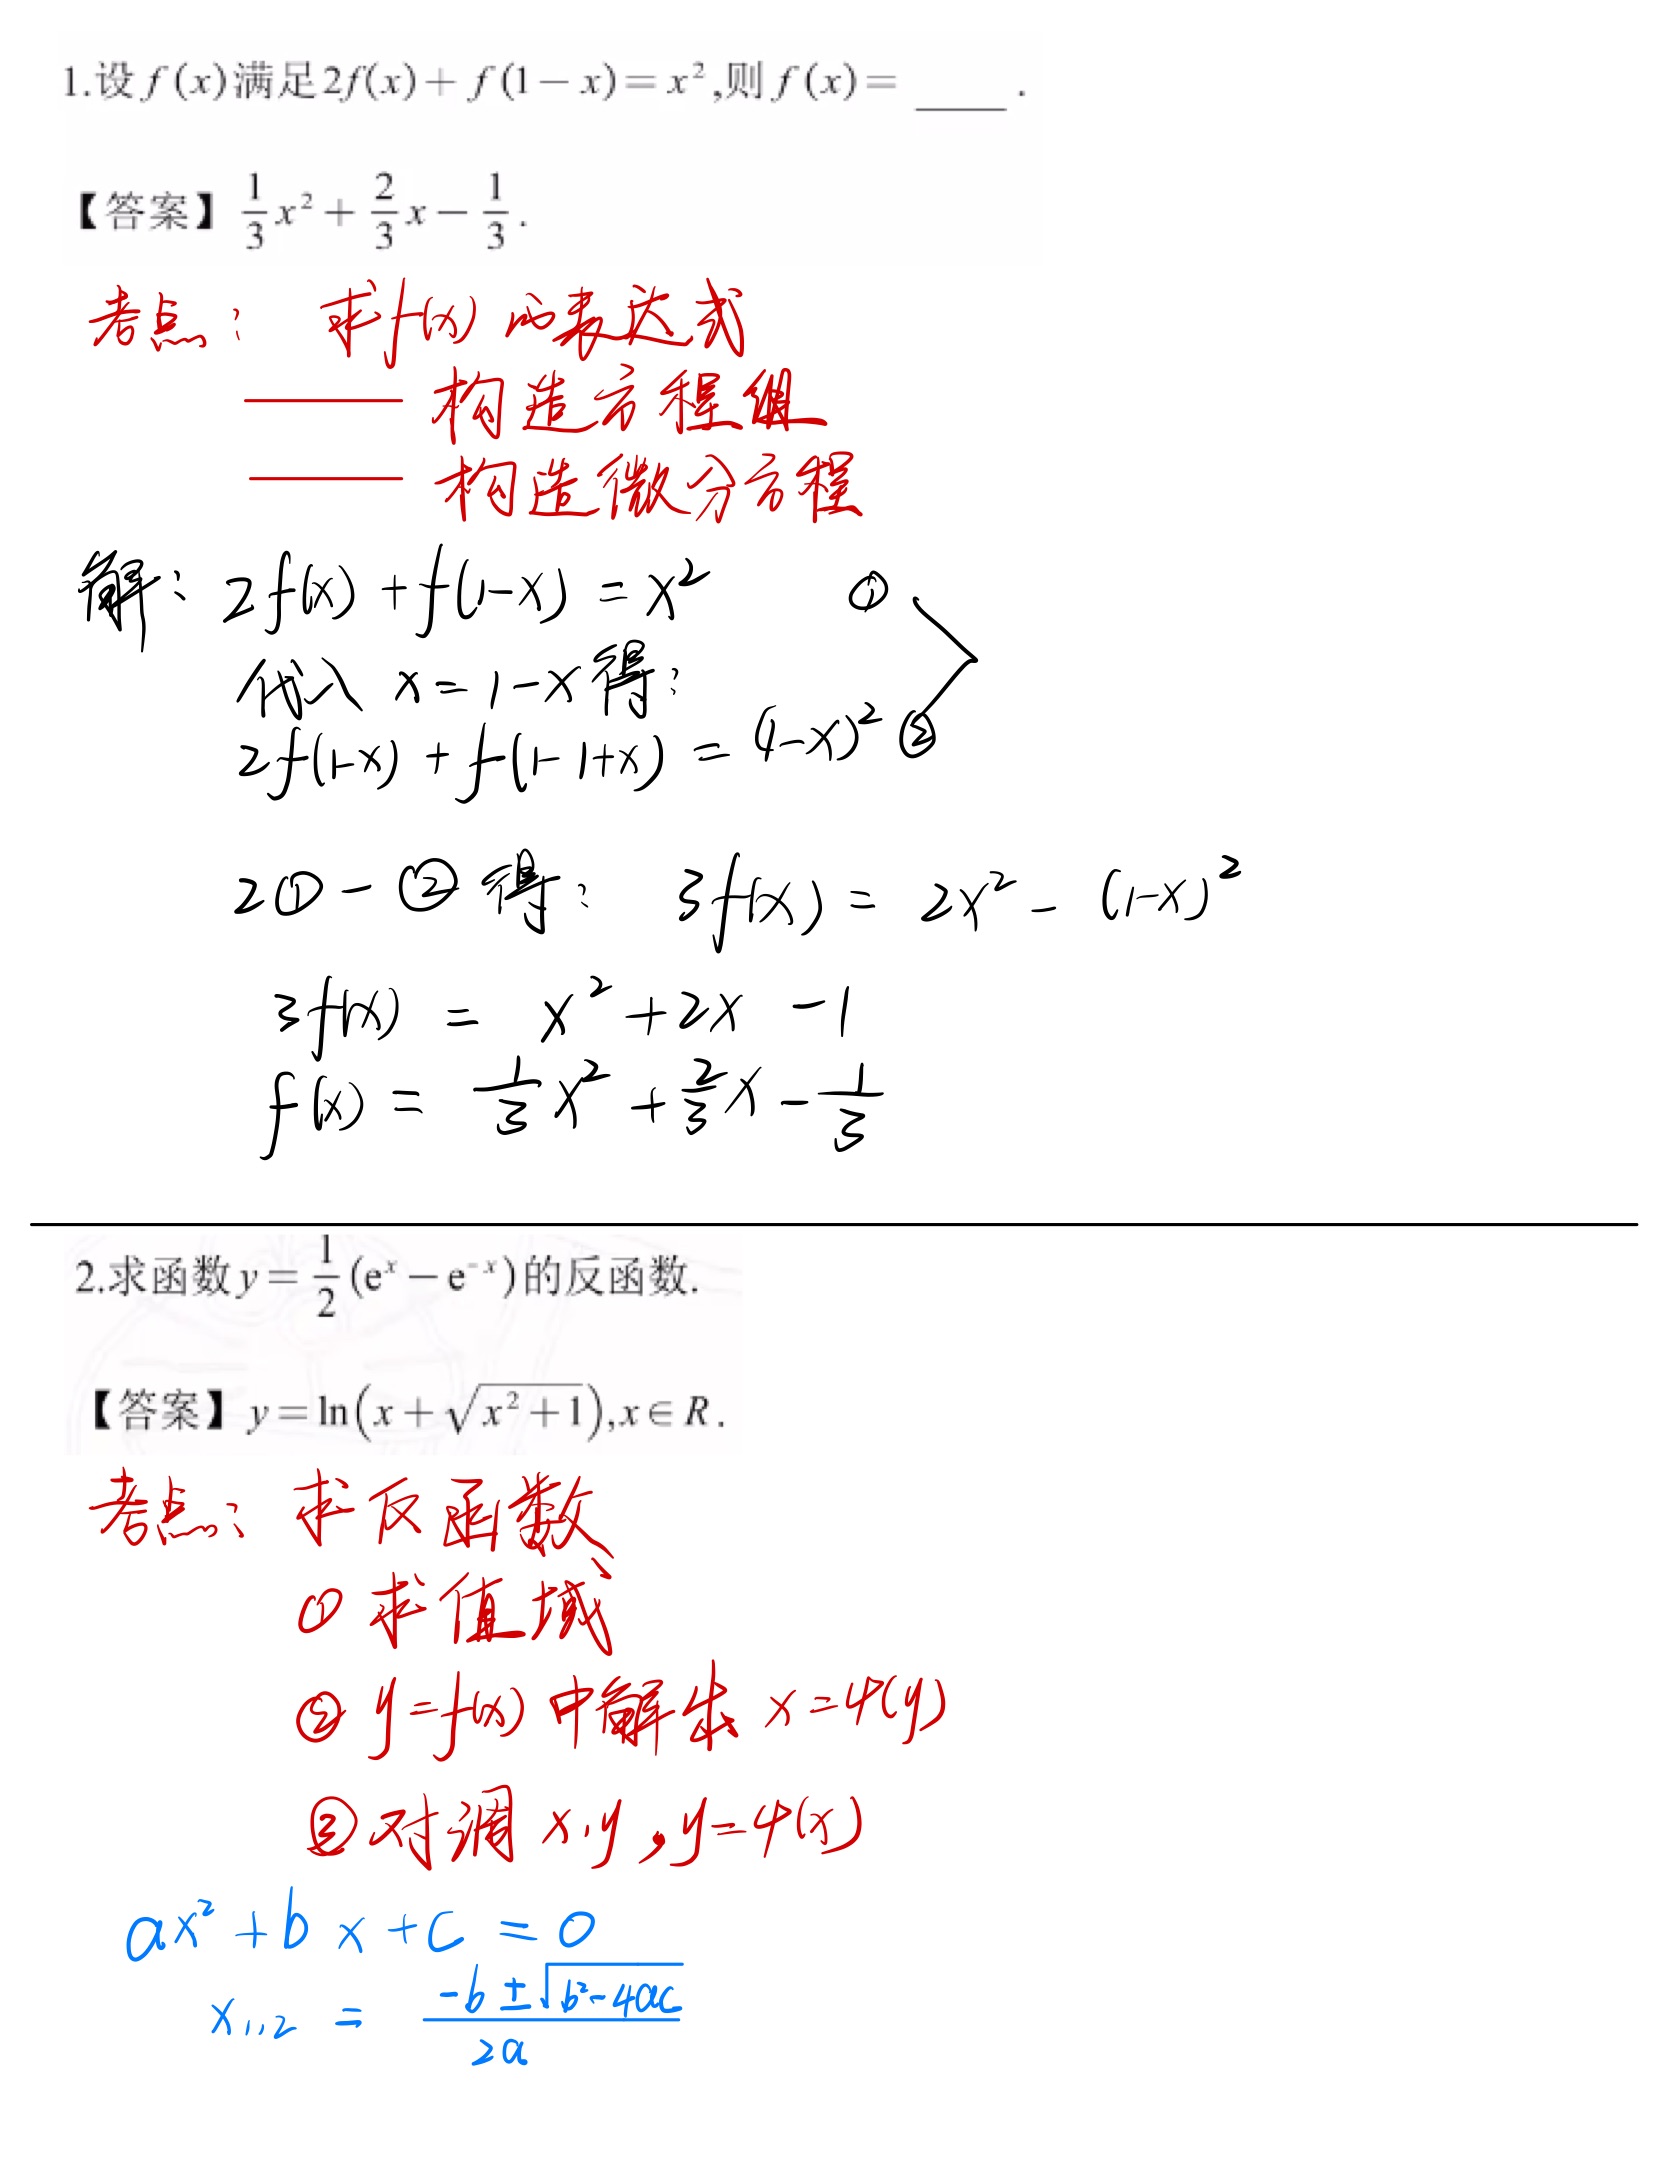 1.设f(x)满足2f(x)+f(1-x)=x²,则f(x)=____.
【答案】1/3x²+2/3x-1/3.
考点: 求f(x)的表达式
—— 构造方程组
—— 构造微分方程
解: 2f(x)+f(1-x)=x² ①
代入 x=1-x得:
2f(1-x)+f(1-1+x)=(1-x)² ②
2①-②得: 3f(x)=2x²-(1-x)²
3f(x)=x²+2x-1
f(x)=1/3x²+2/3x-1/3
2.求函数y=1/2(eˣ-e⁻ˣ)的反函数.
【答案】y=ln(x+√(x²+1)),x∈R.
考点: 求反函数
①求值域
②y=f(x)中解出 x=φ(y)
③对调x,y,y=φ(x)
ax²+bx+c=0
x₁,₂=(-b±√(b²-4ac))/2a